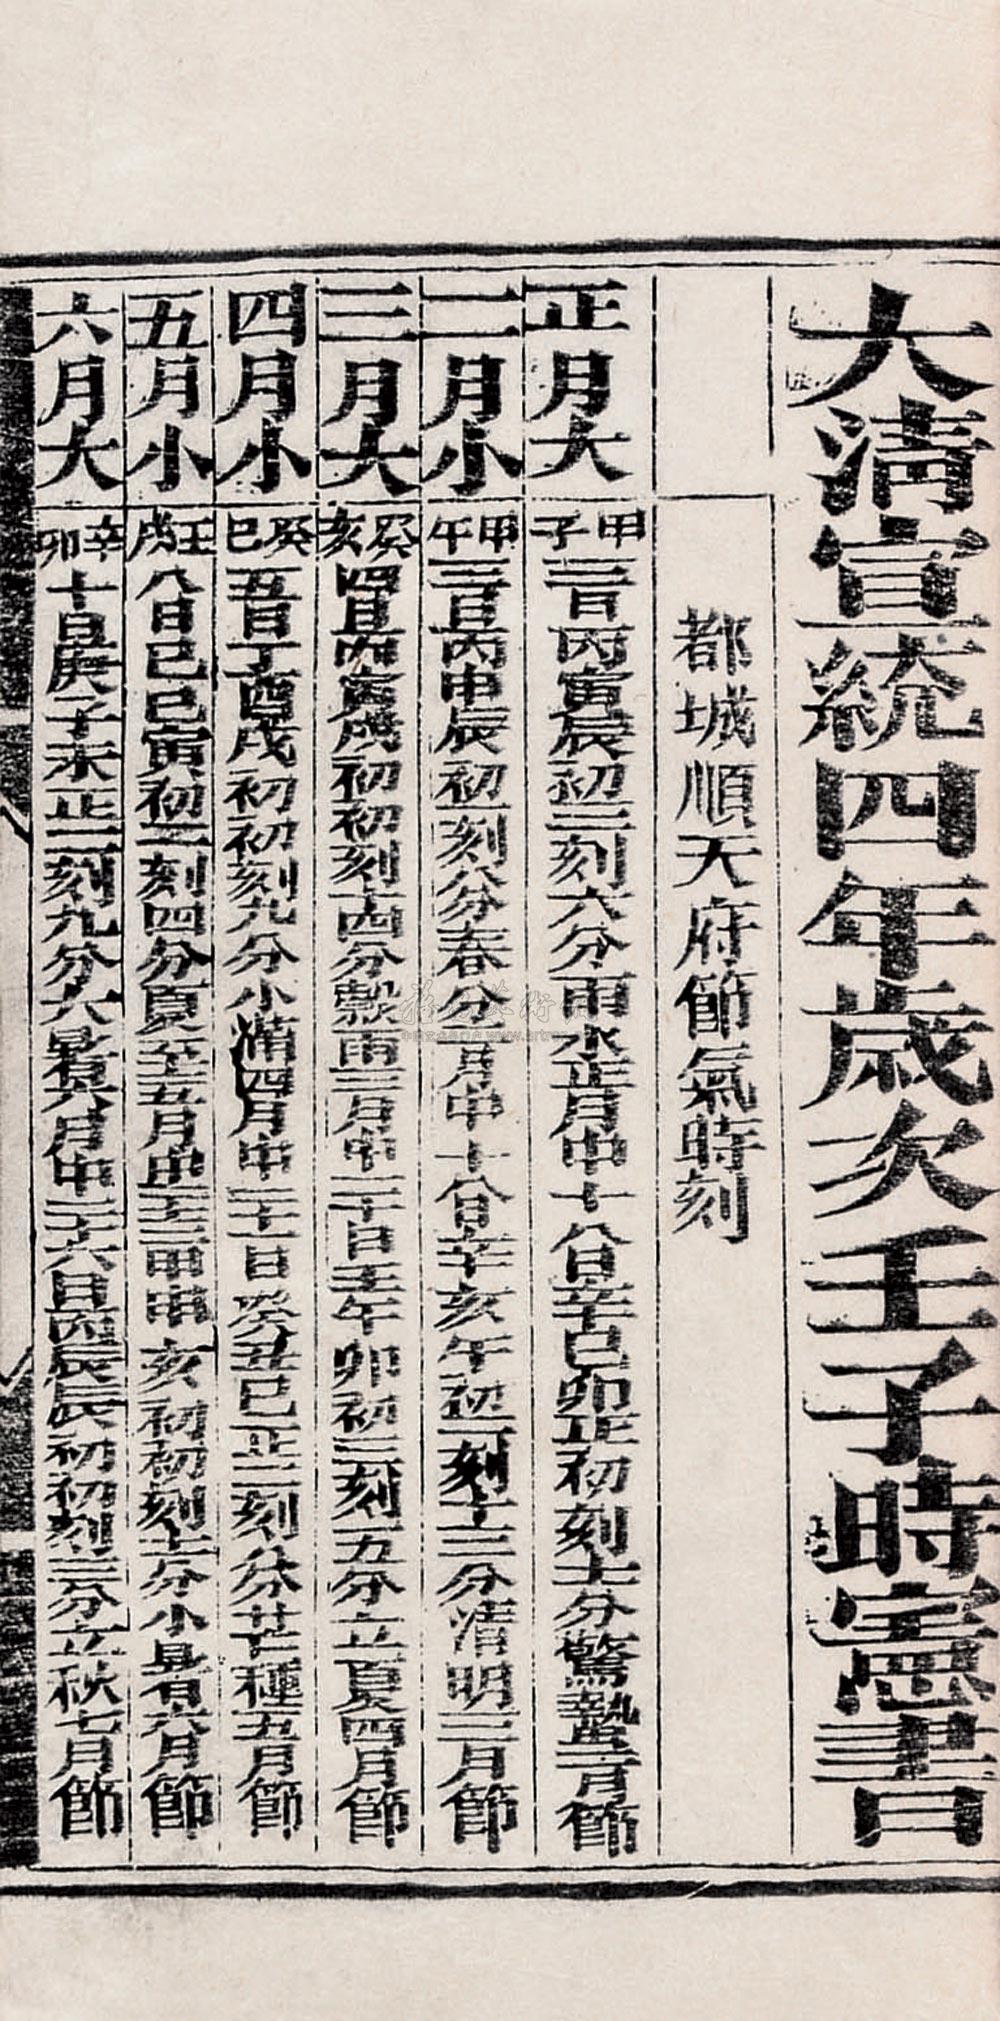 大清宣統四年歲次壬子時憲書
都城順天府節氣時刻
正月大 甲子 三日丙寅辰初三刻六分雨水正月中十八日辛巳卯正初刻十一分驚蟄二月節
二月小 甲午 三日丙申辰初一刻八分春分二月中十八日辛亥午初一刻十三分清明三月節
三月大 癸亥 四日丙寅戌初初刻十四分穀雨三月中二十日壬午卯初三刻五分立夏四月節
四月小 癸巳 五日丁酉戌初初刻九分小滿四月中二十一日癸丑巳正二刻八分芒種五月節
五月小 壬戌 八日己巳寅初二刻四分夏至五月中二十三日甲申亥初初刻十一分小暑六月節
六月大 辛卯 十日庚子未正二刻九分大暑六月中二十六日丙辰辰初初刻三分立秋七月節